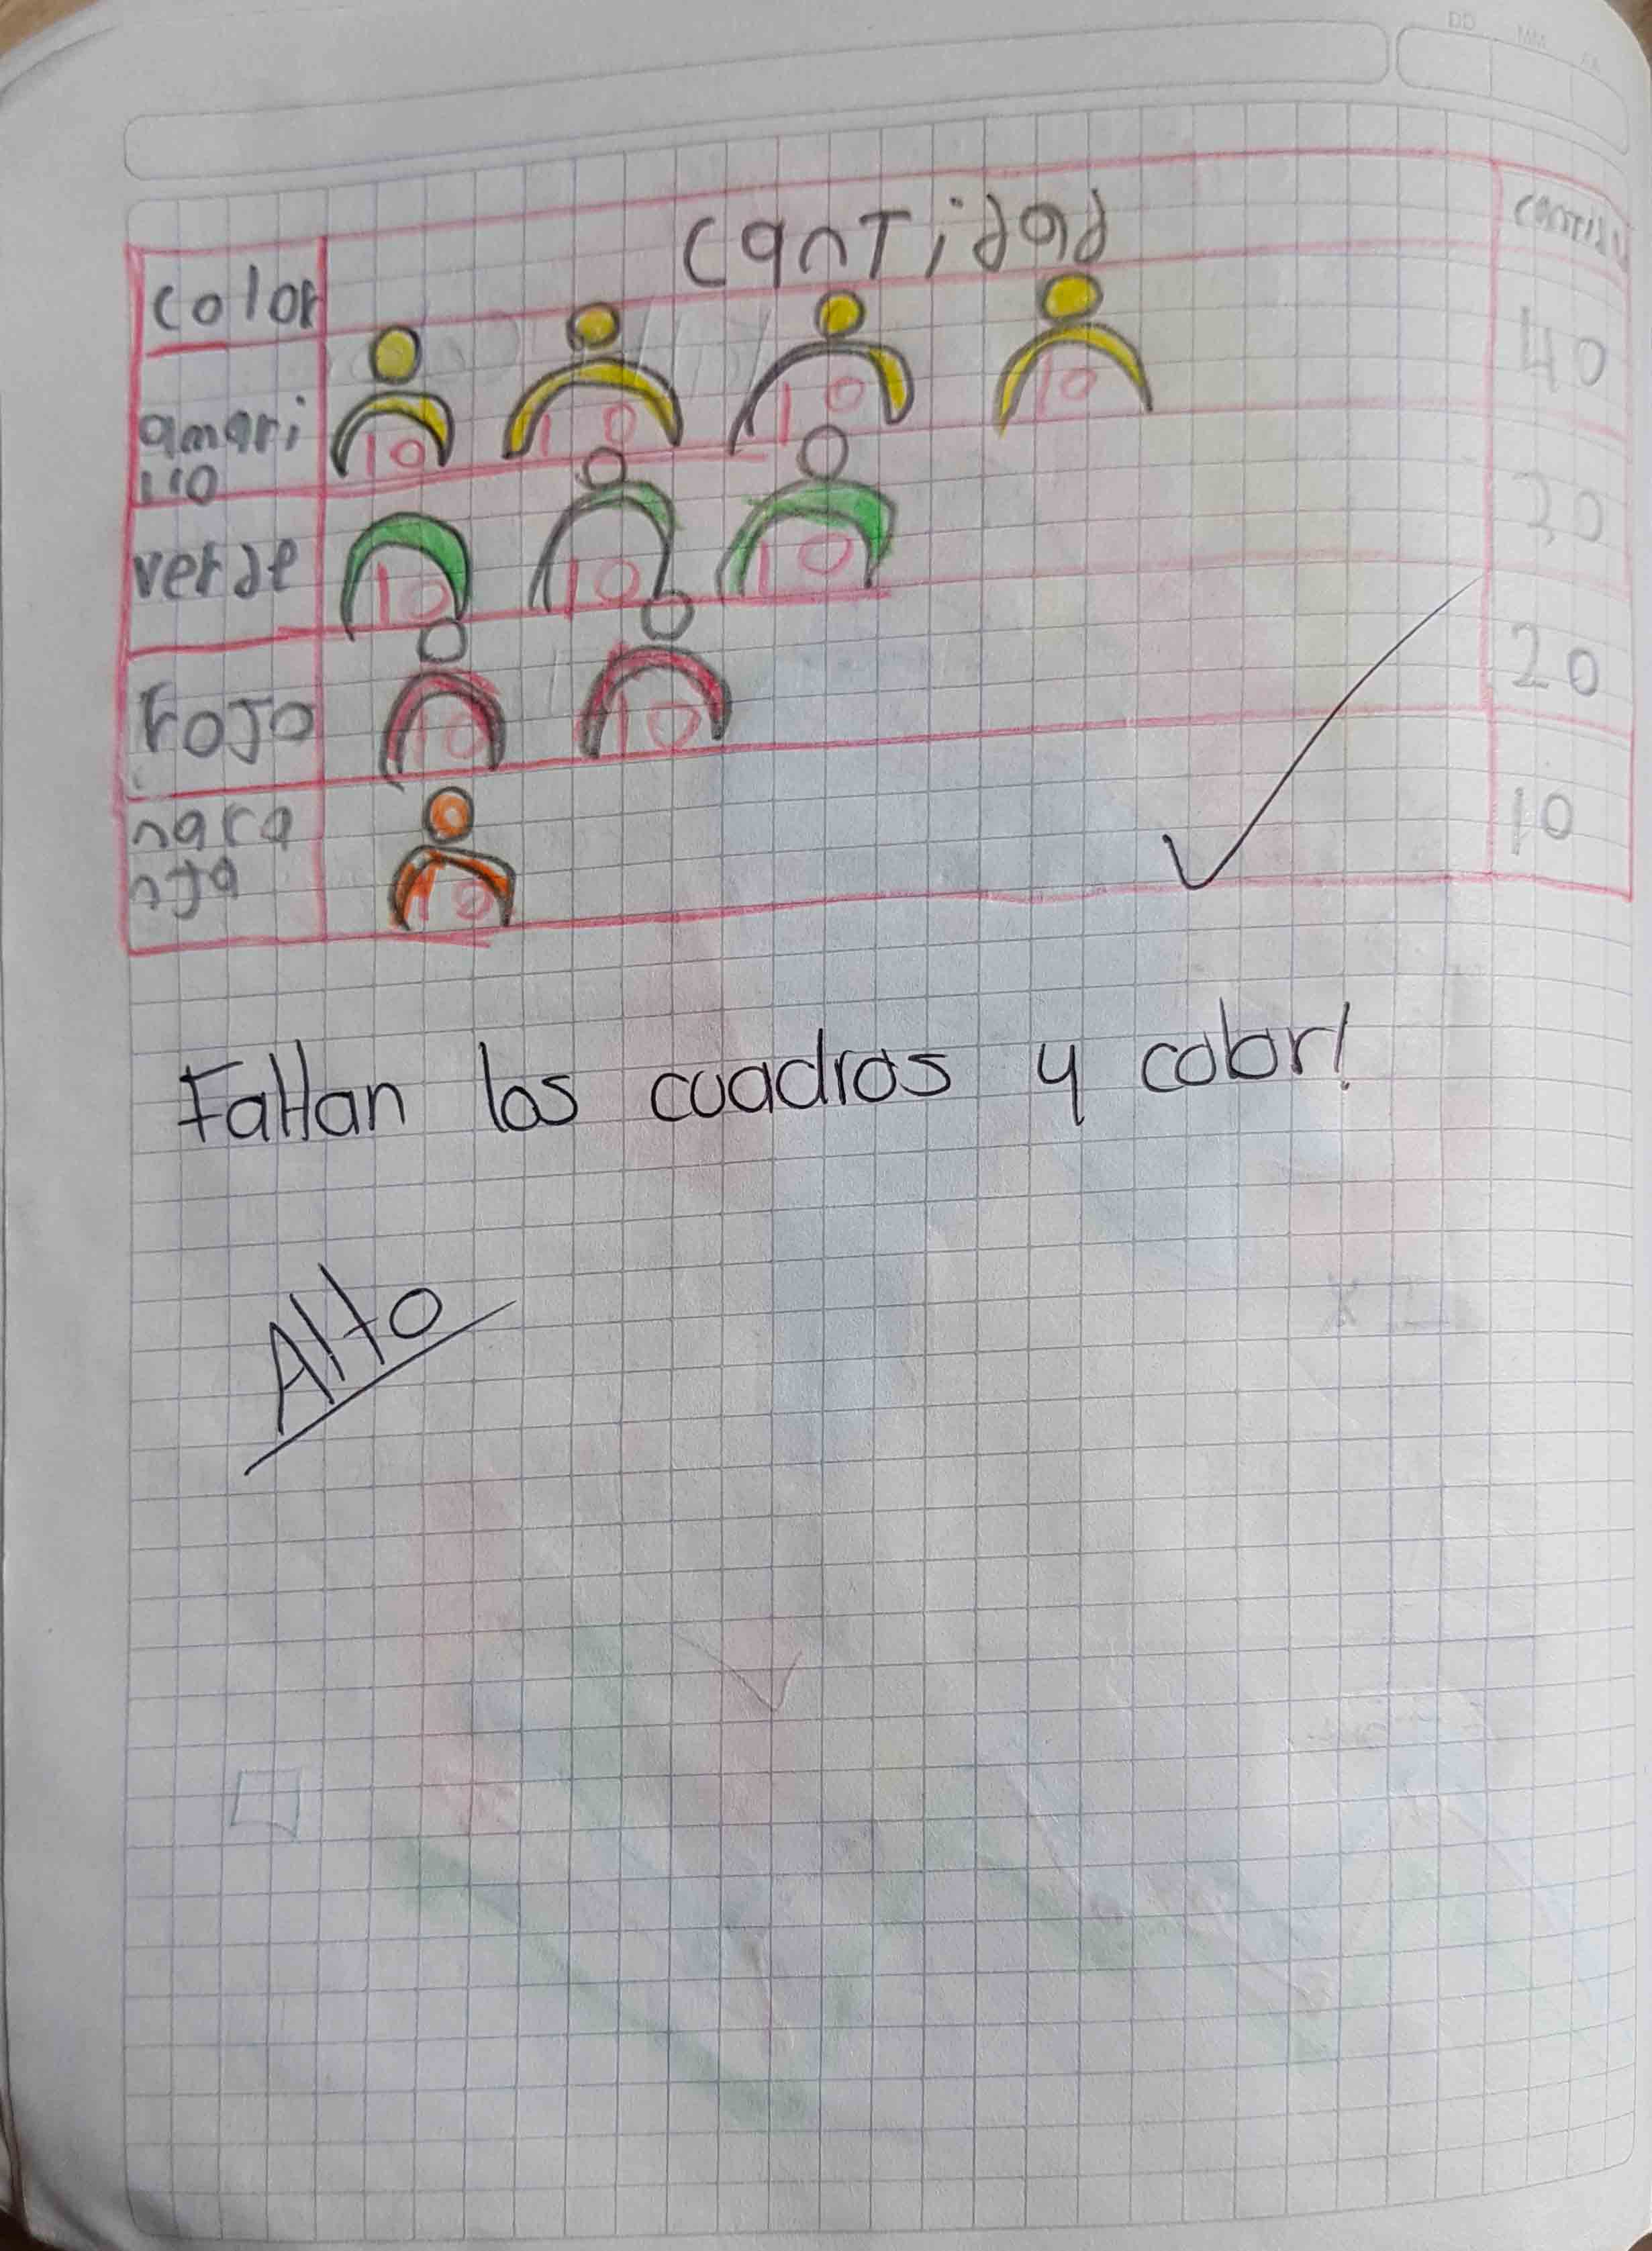 DD MM AA
color cantidad
amari
llo 10 10 10 10 40
verde 10 10 10
rojo 10 10 20
nara
nja 10 10
Faltan los cuadros y color!
Alto